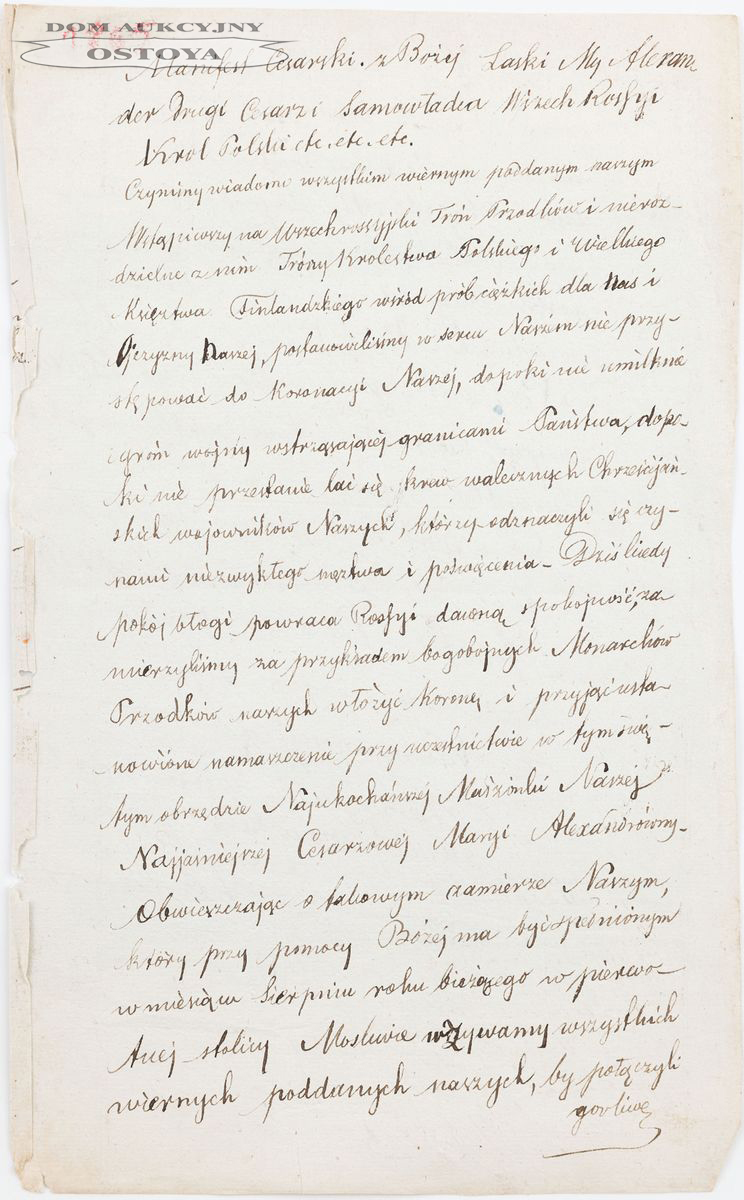 DOM AUKCYJNY
OSTOYA
Manifest Cesarski. z Bożej Łaski My Alexan
der Drugi Cesarz i Samowładca Wszech Rossyi
Krol Polski etc. etc. etc.
Czynimy wiadomo wszystkim wiernym poddanym naszym
Wstąpiwszy na Wszechrossyjski Tron Przodków i nieroz-
dzielne z nim Trony Krolestwa Polskiego i Wielkiego
Księztwa Finlandzkiego wśród prób ciężkich dla nas i
Ojczyzny Naszej, postanowiliśmy w sercu Naszem nie przy-
stępować do Koronacyi Naszej, dopoki nie umilknie
grom wojny wstrząsającej granicami Państwa, dopo-
ki nie przestanie lać się krew walecznych Chrześcijań-
skich wojowników Naszych, którzy odznaczyli się czy-
nami niezwykłego męztwa i poświęcenia - Dziś kiedy
pokój błogi powraca Rossyi dawną spokojność, za
mierzyliśmy za przykładem bogobojnych Monarchów
Przodków naszych włożyć Koronę i przyjąć usta
nowione namaszczenie przy uczestnictwie w tym świę-
tym obrzędzie Najukochańszej Małżonki Naszej
Najjaśniejszej Cesarzowej Maryi Alexandrówny-
Obwieszczając o takowym zamierze Naszym,
który przy pomocy Bożej ma być spełnionym
w miesiącu Sierpniu roku bieżącego w pierwo-
tnej stolicy Moskwie wzywamy wszystkich
wiernych poddanych naszych, by połączyli
gorliwe